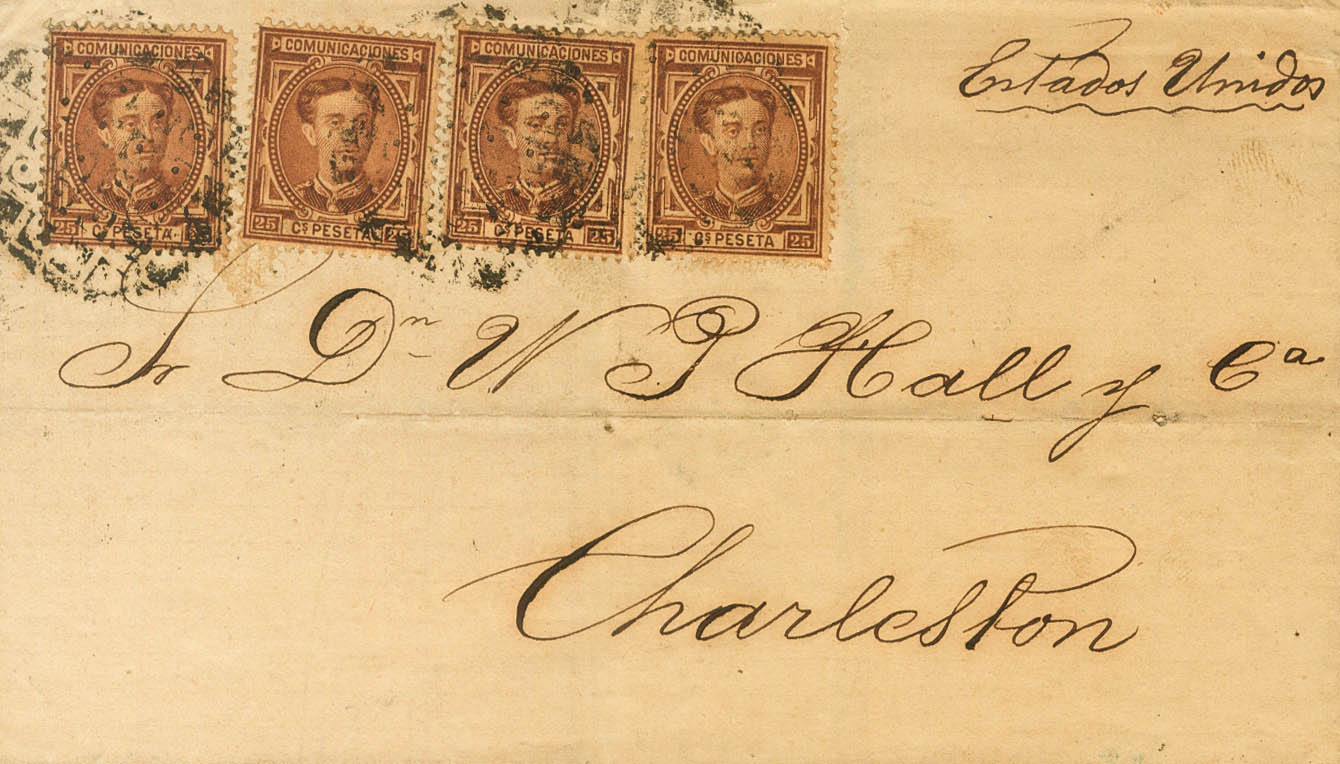 COMUNICACIONES COMUNICACIONES COMUNICACIONES COMUNICACIONES
25 Cs PESETA 25 25 Cs PESETA 25 25 Cs PESETA 25 25 Cs PESETA 25
Estados Unidos
Sr Dn W P Hall y Ca
Charleston